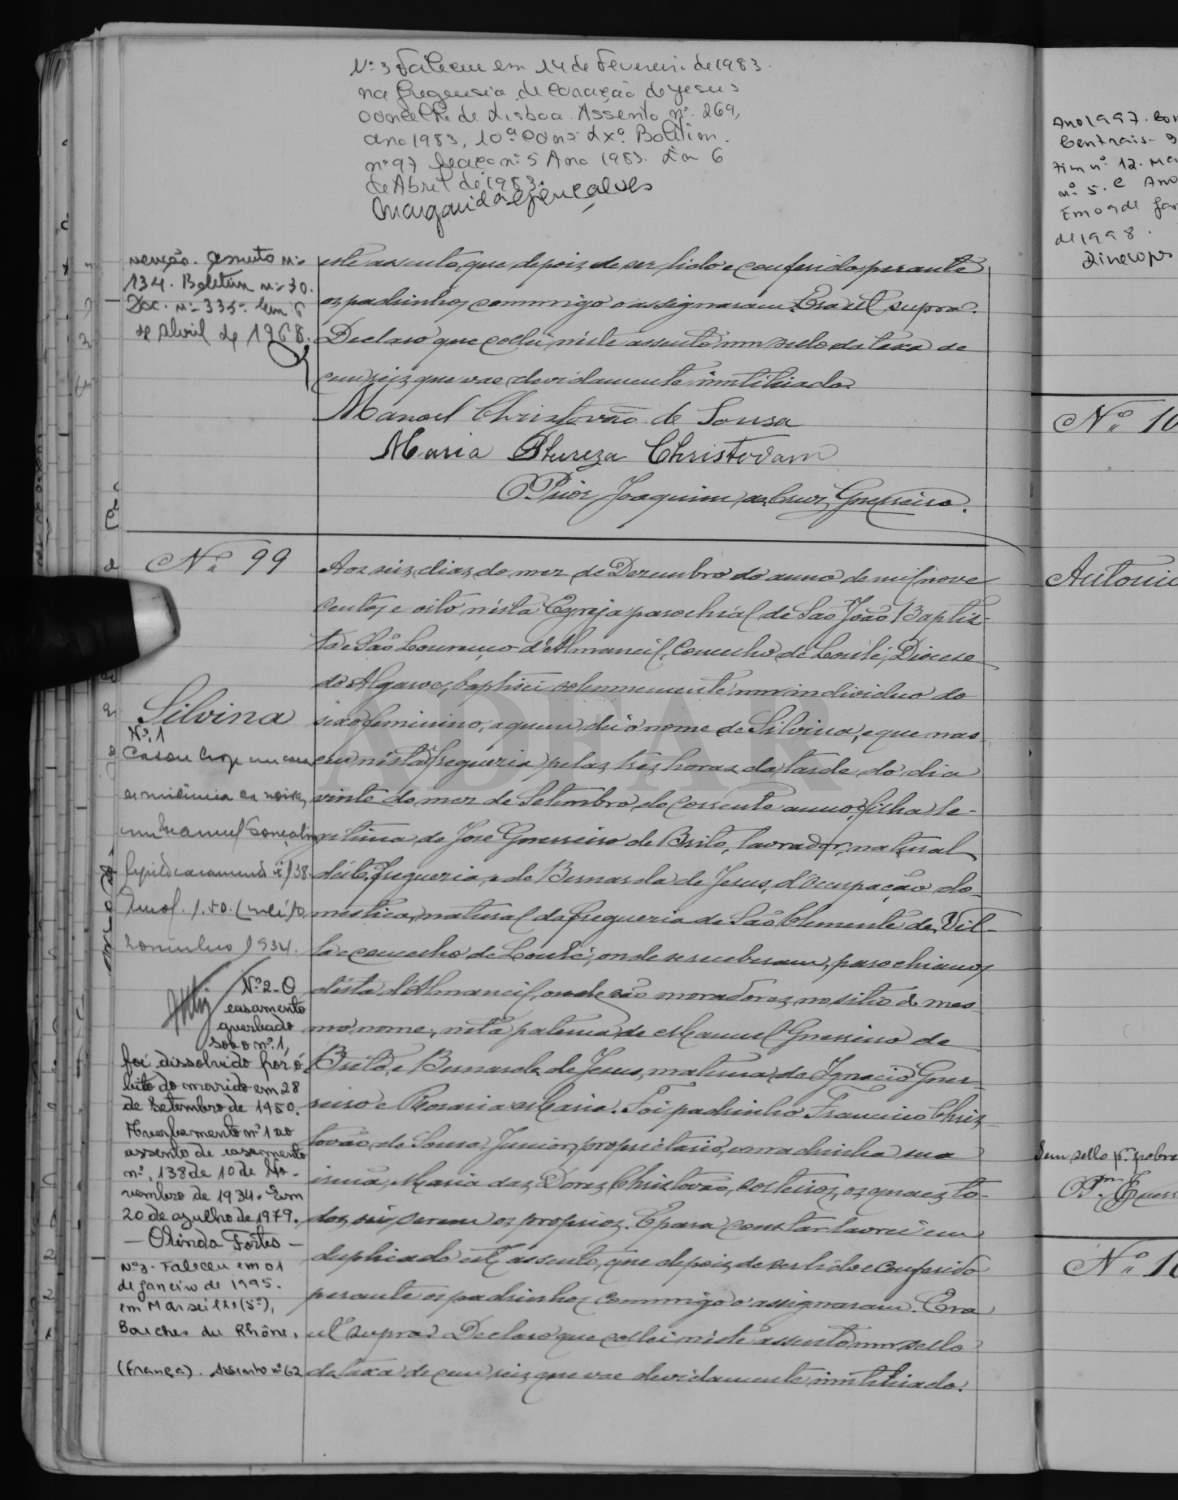 Nº 3 Faleceu em 14 de Fevereiro de 1983.
na freguesia de Coração de Jesus
concelho de Lisboa. Assento nº. 269,
ano 1983, 10ª Cons. Lxª. Boletim
nº 97 Maço nº 5 Ano 1983. Em 6
de Abril de 1983.
Margarida Gonçalves
venção. Assento nº
134. Boletim nº 30.
Doc. nº 335. Em 5
de Abril de 1968.
este assento, que depois de ser lido e conferido perante
os padrinhos commigo o assignaram. Era ut supra.
Declaro que collei n'este assento um sello da taxa de
cem reis que vae devidamente inutilisado.
Manoel Christovão de Sousa
Maria Thereza Christovam
O Prior, Joaquim da Cruz Guerreiro.
Nº 99
Silvina
Aos seis dias do mez de Dezembro do anno de mil nove
centos e oito n'esta Egreja parochial de São João Baptis-
ta e São Lourenço d'Almancil, Concelho de Loulé, Diocese
do Algarve, baptisei solemnemente um individuo do
sexo feminino, a quem dei o nome de Silvina, e que nas
ceu n'esta freguezia pelas tres horas da tarde do dia
vinte do mez de Setembro do corrente anno, filha le-
gitima de José Guerreiro de Brito, lavrador, natural
d'esta freguezia, e de Bernarda de Jesus, d'occupação do-
mestica, natural da freguezia de São Clemente de Vil-
la e concelho de Loulé, onde se receberam, parochianos
d'esta d'Almancil, onde são moradores, no sitio do mes
mo nome, neta paterna de Manuel Guerreiro de
Brito, e Bernarda de Jesus, materna de Ignacio Guer-
reiro e Rosaria Maria. Foi padrinho Francisco Chris
tovão de Sousa Junior, proprietario, e madrinha sua
irmã, Maria das Dores Christovão, solteiros, os quaes to-
dos sei serem os proprios. E para constar lavrei em
duplicado este assento, que depois de ser lido e conferido
perante os padrinhos commigo o assignaram. Era
ut supra. Declaro que collei n'este assento um sello
da taxa de cem reis que vae devidamente inutilisado.
Nº. 1
Casou hoje em
com Manuel Gonçalves
casamento nº 138
Novembro 1934.
Nº 2 - O
casamento
averbado
sob o nº. 1,
foi dissolvido por ó-
bito do marido em 28
de Setembro de 1950.
Averbamento nº 1 ao
assento de casamento
nº. 138 de 10 de No-
vembro de 1934. Em
20 de Julho de 1979.
— Olinda Fortes —
Nº 3. Faleceu em 01
de janeiro de 1995.
em Marseille (5º),
Bouches du Rhône,
(França). Assento nº 62
Ano 1997.
Centrais
tim nº 12.
nº 5. e Ano
Em 09 de
de 1998.
Nº 10
Antonio
Sem sello p. pobre
Nº 10
ADFAR